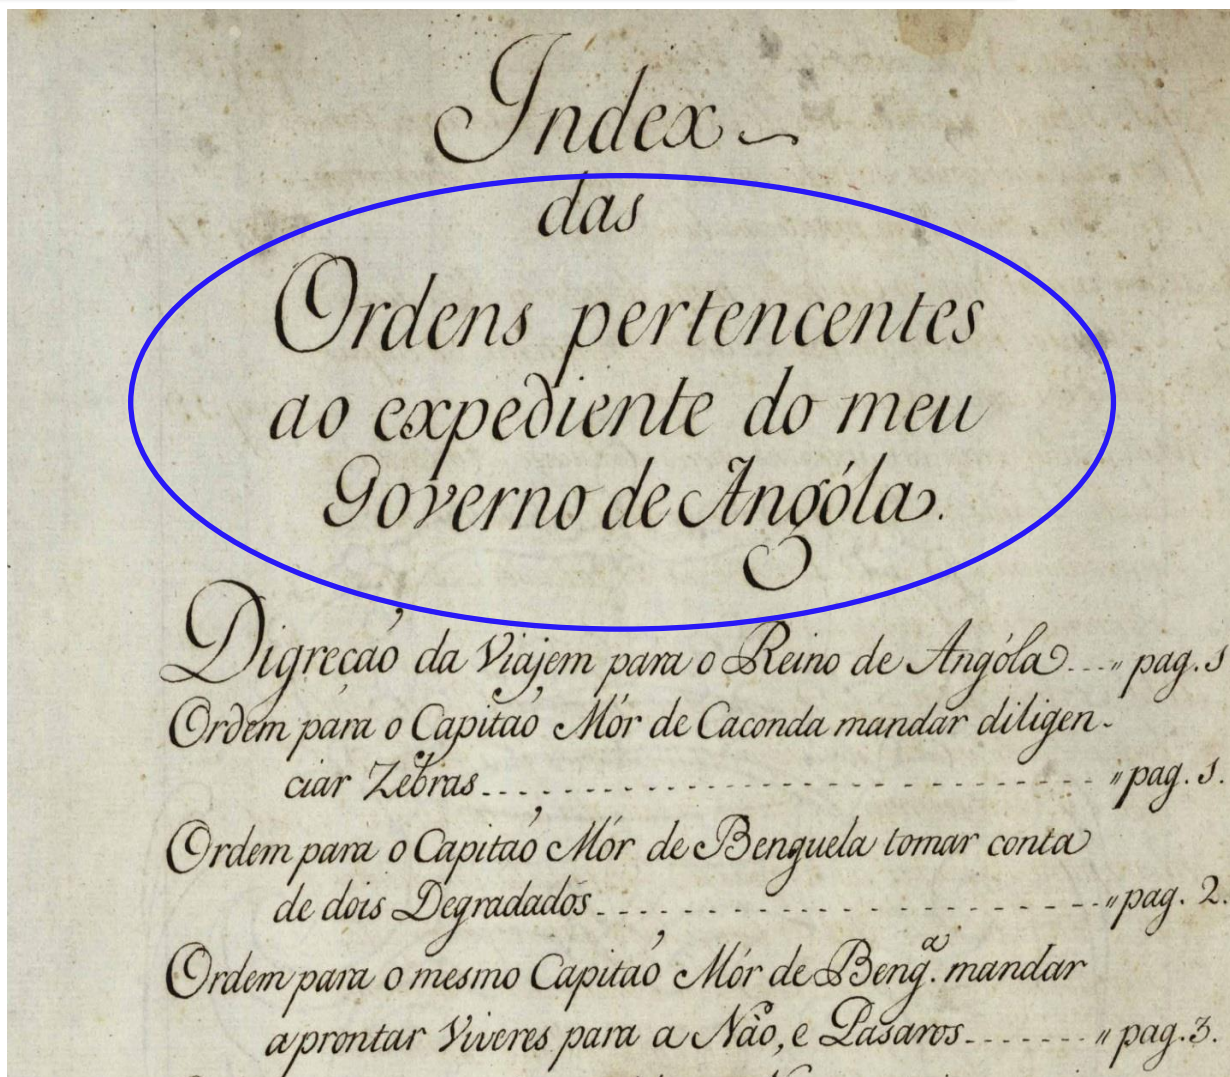 Index
das
Ordens pertencentes
ao expediente do meu
Governo de Angóla.
Digreçaõ da Viajem para o Reino de Angóla...." pag. 1
Ordem para o Capitaõ Mór de Caconda mandar diligen-
ciar Zebras.............................." pag. 1.
Ordem para o Capitaõ Mór de Benguela tomar conta
de dois Degradados.............................." pag. 2.
Ordem para o mesmo Capitaõ Mór de Beng.ª mandar
aprontar Viveres para a Náo, e Pasaros......." pag. 3.